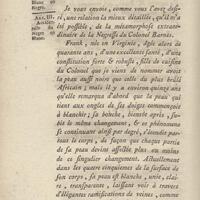 Blanc
Negre.
Art. III.
Accident
du
Negre
Blanc.
Je vous envoie, comme vous l'avez desi-
ré, une relation la mieux détaillée, qu'il m'a
été possible, de la métamorphose extraor-
dinaire de la Negresse du Colonel Barnès.
Frank, née en Virginie, âgée alors de
quarante ans, d'une excellente santé, d'une
constitution forte & robuste, fille de cuisine
du Colonel que je viens de nommer avoit
la peau aussi noire que celle du plus brûlé
Africain; mais il y a environ quinze ans
qu'elle remarqua d'abord que la peau qui
tient aux ongles de ses doigts commençoit
à blanchir; sa bouche, bientôt après, su-
bit le même changement, & ce phénomene
se continuant ainsi par degré, s'étendit par-
tout le corps, de façon que chaque partie
de sa peau devint affectée plus ou moins
de ce singulier changement. Actuellement
dans les quatre cinquiemes de la surface de
son corps, sa peau est blanche, unie, clai-
re, transparente, laissant voir à travers
d'élégantes ramifications de veines, comme